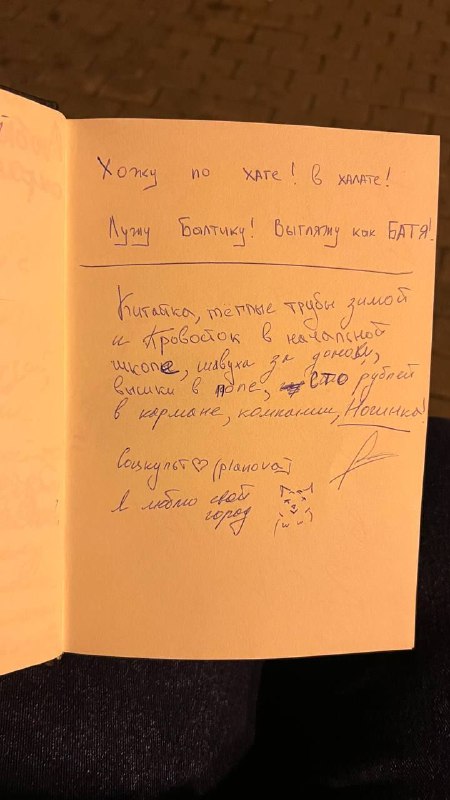 Хожу по хате! в халате!
Лужу Балтику! Выгляжу как БАТЯ!
Китайка, тёплые трубы зимой
и Кровосток в начальной
школе, шавуха за домом,
вышки в поле, сто рублей
в кармане, компании, Ногинка!
Соцкульт♡ (planova)
я люблю свой
город